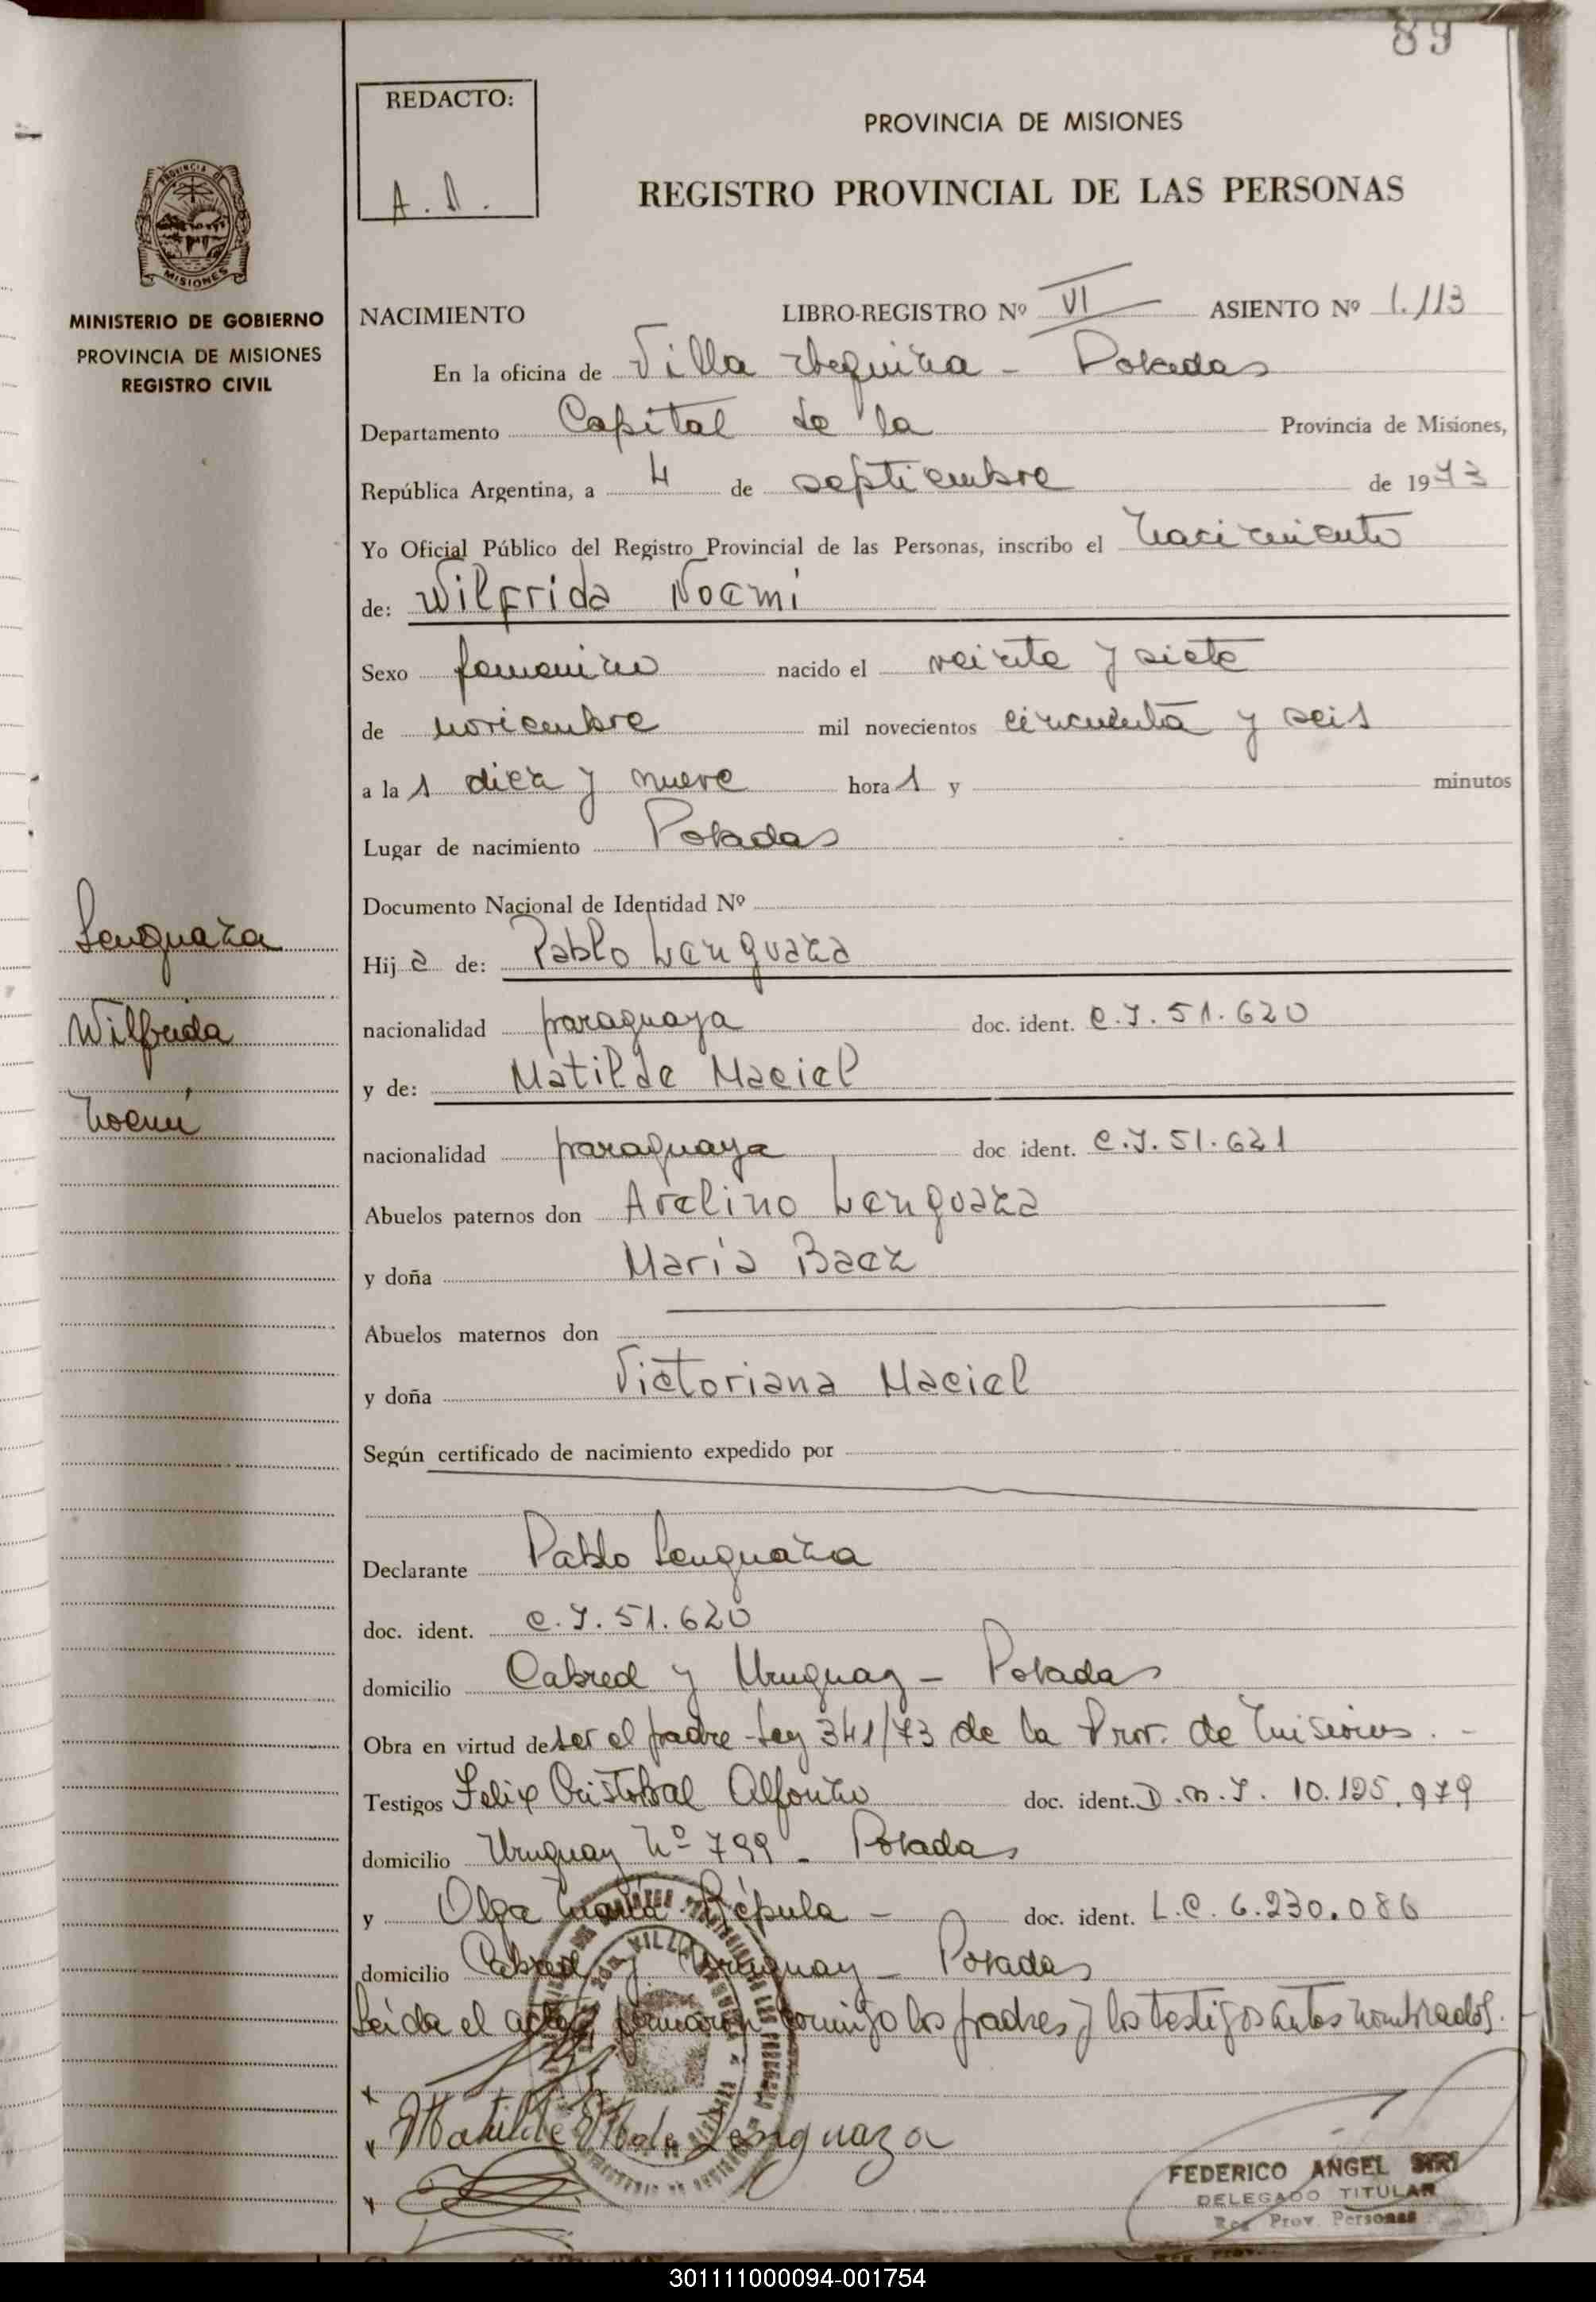 89
REDACTO:
A. D.
PROVINCIA DE MISIONES
REGISTRO PROVINCIAL DE LAS PERSONAS
PROVINCIA DE
MISIONES
MINISTERIO DE GOBIERNO
PROVINCIA DE MISIONES
REGISTRO CIVIL
NACIMIENTO LIBRO-REGISTRO Nº VI ASIENTO Nº 1.113
En la oficina de Villa Urquiza - Posadas
Departamento Capital de la Provincia de Misiones,
República Argentina, a 4 de septiembre de 1973
Yo Oficial Público del Registro Provincial de las Personas, inscribo el nacimiento
de: Wilfrida Noemi
Sexo femenino nacido el veinte y siete
de noviembre mil novecientos cincuenta y seis
a la s diez y nueve hora s y minutos
Lugar de nacimiento Posadas
Documento Nacional de Identidad Nº
Lenguaza
Wilfrida
Noemí
Hij a de: Pablo Lenguaza
nacionalidad paraguaya doc. ident. C.I. 51.620
y de: Matilde Maciel
nacionalidad paraguaya doc. ident. C.I. 51.621
Abuelos paternos don Avelino Lenguaza
y doña María Baez
Abuelos maternos don
y doña Victoriana Maciel
Según certificado de nacimiento expedido por
Declarante Pablo Lenguaza
doc. ident. C.I. 51.620
domicilio Cabred y Uruguay - Posadas
Obra en virtud de ser el padre - Ley 341/73 de la Prov. de Misiones. -
Testigos Felix Cristobal Alfonzo doc. ident. D.N.I. 10.195.979
domicilio Uruguay Nº 799 - Posadas
y Olga María doc. ident. L.C. 6.230.086
domicilio Cabred y Uruguay - Posadas
Leida el acta, firmaron conmigo los padres y los testigos antes nombrados.
Matilde M de Lenguaza
FEDERICO ANGEL SIRI
DELEGADO TITULAR
Reg Prov. Personas
301111000094-001754